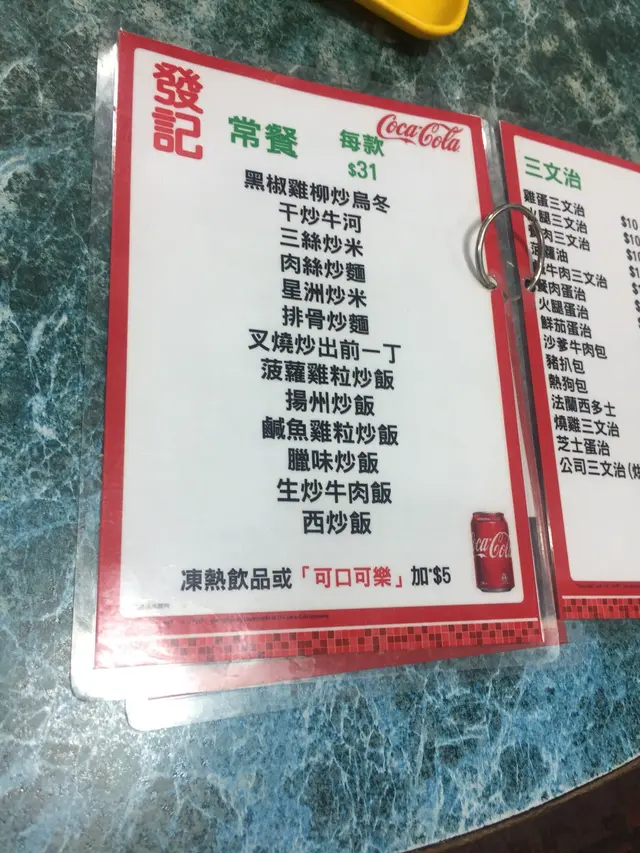 發記
常餐
每款
$31
Coca-Cola
黑椒雞柳炒烏冬
干炒牛河
三絲炒米
肉絲炒麵
星洲炒米
排骨炒麵
叉燒炒出前一丁
菠蘿雞粒炒飯
揚州炒飯
鹹魚雞粒炒飯
臘味炒飯
生炒牛肉飯
西炒飯
凍熱飲品或「可口可樂」加*$5
Coca-Cola
三文治
雞蛋三文治 $10
火腿三文治
肉三文治
菠蘿油
牛肉三文治
餐肉蛋治
火腿蛋治
鮮茄蛋治
沙爹牛肉包
豬扒包
熱狗包
法蘭西多士
燒雞三文治
芝士蛋治
公司三文治